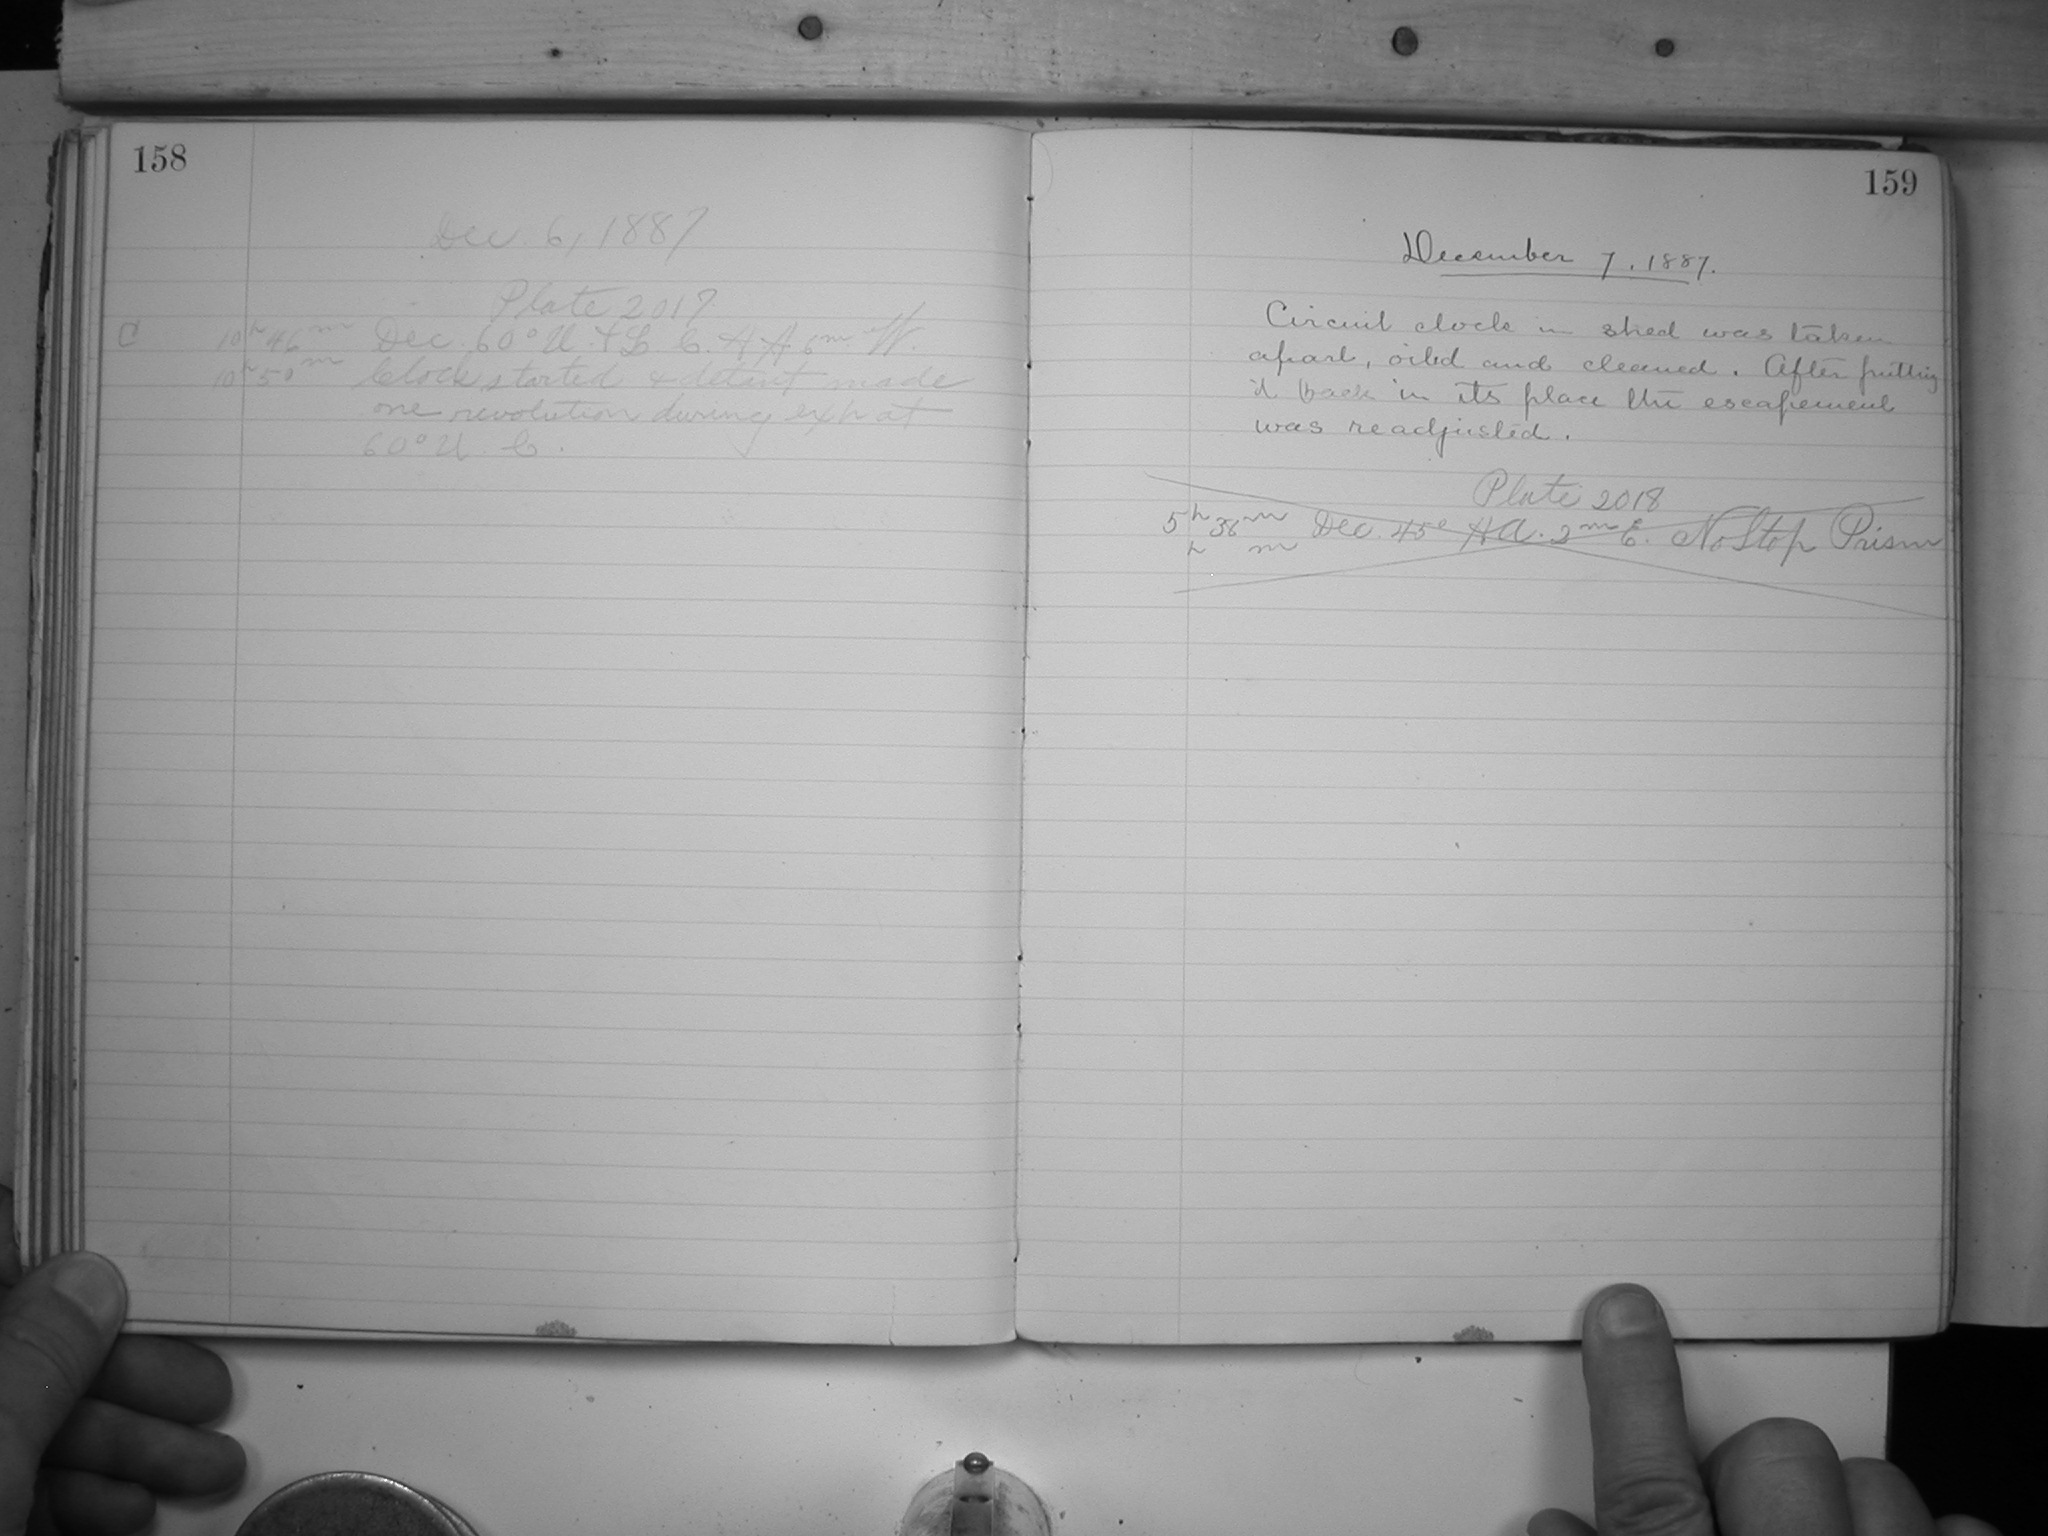 158
Dec. 6, 1887
Plate 2017
C 10h 46m Dec. 60° U. & L. C. H A 6m W.
10h 50m Clock started & detent made
one revolution during exp at
60° U. C.
159
December 7, 1887.
Circuit clock in shed was taken
apart, oiled and cleaned. After putting
it back in its place the escapement
was readjusted.
Plate 2018
5h 38m Dec. 45° H A. 2m E. No Stop Prism
h m